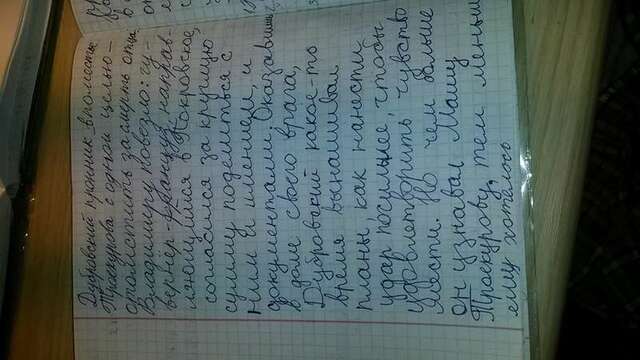 Дубровский проник в поместье
Троекурова с одной целью –
отомстить за смерть отца.
Владимиру повезло: гу-
вернёр-француз, направ-
ляющийся в Покровское,
согласился за круглую
сумму поделиться с
ним и именем, и
документами. Оказавшись
в доме своего врага,
Дубровский какое-то
время вынашивал
планы, как нанести
удар посильнее, чтобы
удовлетворить чувство
мести. Но чем больше
он узнавал Машу
Троекурову, тем меньше
ему хотелось